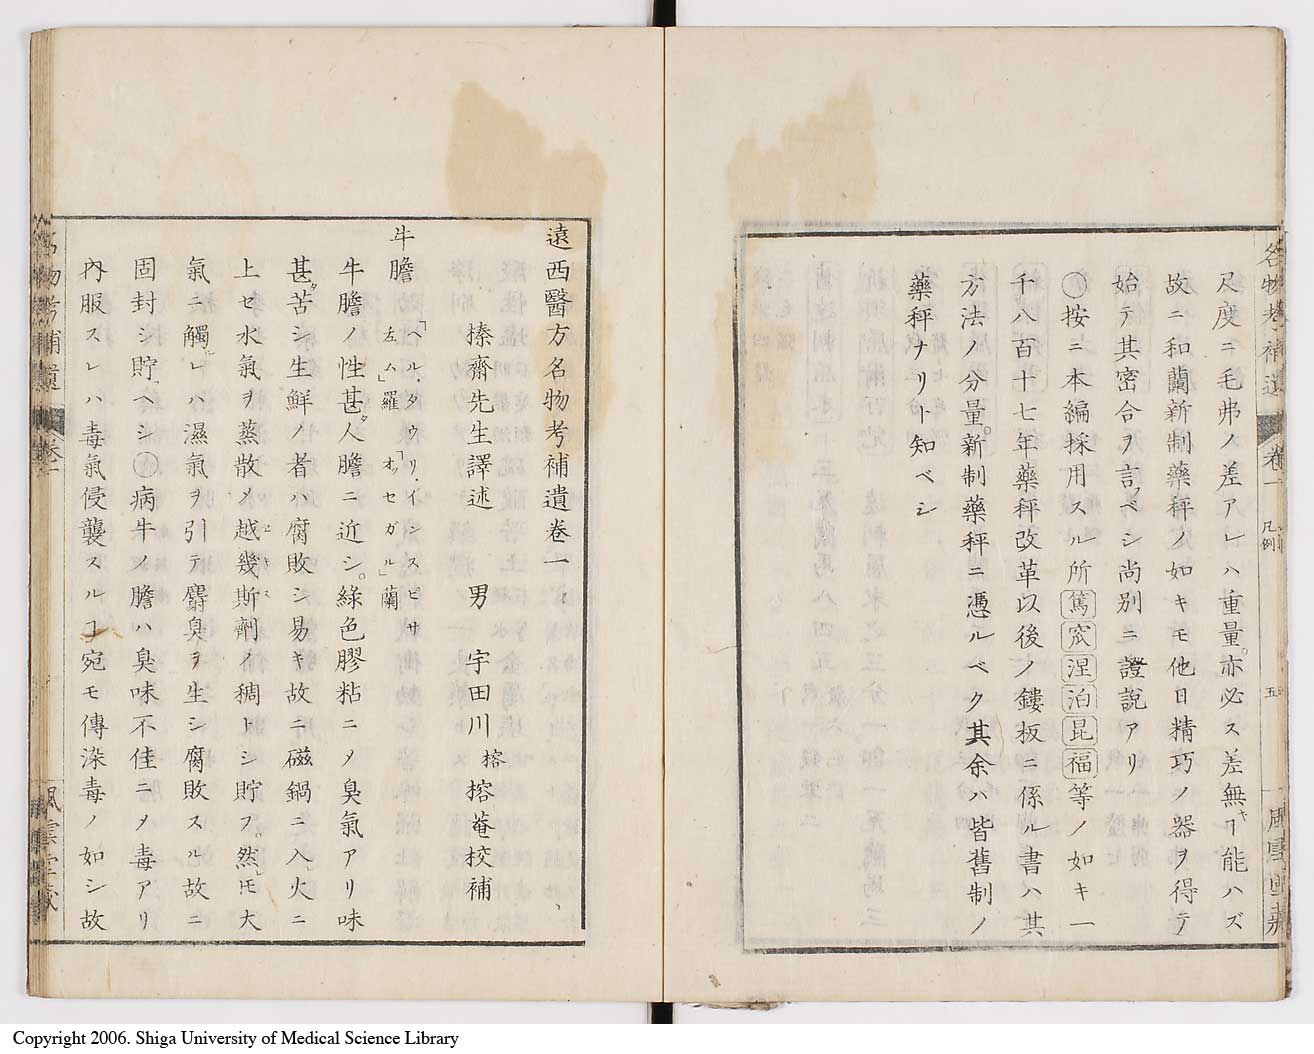 尺度ニ毛弗ノ差アレハ重量亦必ス差無キヿ能ハズ
故ニ和蘭新制藥秤ノ如キモ他日精巧ノ器ヲ得テ
始テ其密合ヲ言フベシ尚別ニ證說アリ
○按ニ本編採用スル所篤宻涅泊昆福等ノ如キ一
千八百十七年藥秤改革以後ノ鏤板ニ係ル書ハ其
方法ノ分量新制藥秤ニ憑ルベク其余ハ皆舊制ノ
藥秤ナリト知ベシ
名物考補遺 卷一 凡例 五
遠西醫方名物考補遺卷一
榛齋先生譯述 男 宇田川榕 榕菴校補
牛膽 「ヘル、タウリ、インスピサ
左ム」羅「オッセガル」蘭
牛膽ノ性甚タ人膽ニ近シ。綠色膠粘ニノ臭氣アリ味
甚タ苦シ生鮮ノ者ハ腐敗シ易キ故ニ磁鍋ニ入レ火ニ
上セ水氣ヲ蒸散メ越幾斯劑ノ稠トシ貯フ。然レモ大
氣ニ觸レハ濕氣ヲ引テ麝臭ヲ生シ腐敗スル故ニ
固封シ貯ヘシ○病牛ノ膽ハ臭味不佳ニメ毒アリ
內服スレハ毒氣侵襲スルヿ宛モ傳染毒ノ如シ故
名物考補遺 卷一 風雲堂藏